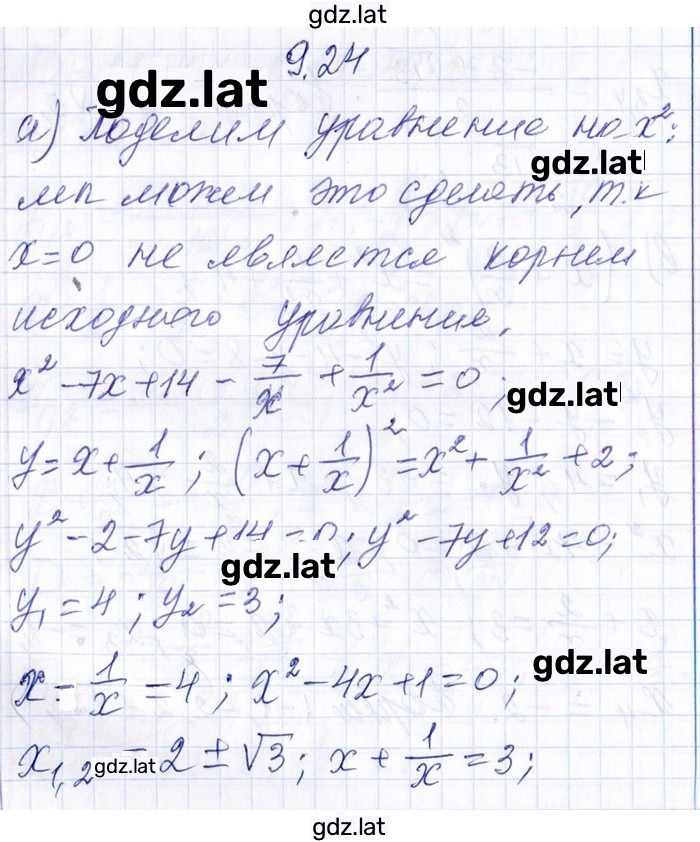 gdz.lat
9.24
gdz.lat
а) Поделим уравнение на x²;
gdz.lat
мы можем это сделать, т.к
x=0 не является корнем
исходного уравнения.
x² - 7x + 14 - 7/x + 1/x² = 0;
gdz.lat
y = x + 1/x; (x + 1/x)² = x² + 1/x² + 2;
y² - 2 - 7y + 14 = 0; y² - 7y + 12 = 0;
gdz.lat
y₁ = 4; y₂ = 3;
gdz.lat
x - 1/x = 4; x² - 4x + 1 = 0;
x₁,₂ = 2 ± √3; x + 1/x = 3;
gdz.lat
gdz.lat